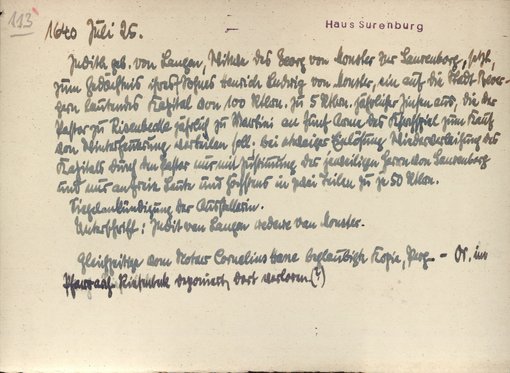 113
Haus Surenburg
1640 Juli 25.
Judith geb. von Langen, Witwe des Georg von Monster zur Surenborg, setzt,
zum Gedächtnis ihres Sohnes Henrich Ludwig von Monster, ein auf die Stadt
lautendes Kapital von 100 Rtlrn. zu 5 Rtlrn jährlicher Zinsen aus, die der
Pastor zu Risenbecke jährlich zu Martini an fünf Arme des Kirchspiel zum Kauf
von Winterfeuerung verteilen soll. Bei etwaiger Einlösung Wiederverleihung des
Kapitals durch den Pastor nur mit Zustimmung der jeweiligen Herrn von Surenberg
und nur an freie Leute und höchstens in zwei Teilen zu je 50 Rtlrn.
Siegelankündigung der Ausstellerin.
Unterschrift: Judit van Langen wedewe van Monster.
Gleichzeitige vom Notar Cornelius Hane beglaubigte Kopie, Perg. - Or. im
Pfarrarch. Riesenbeck deponiert, dort verloren (?)